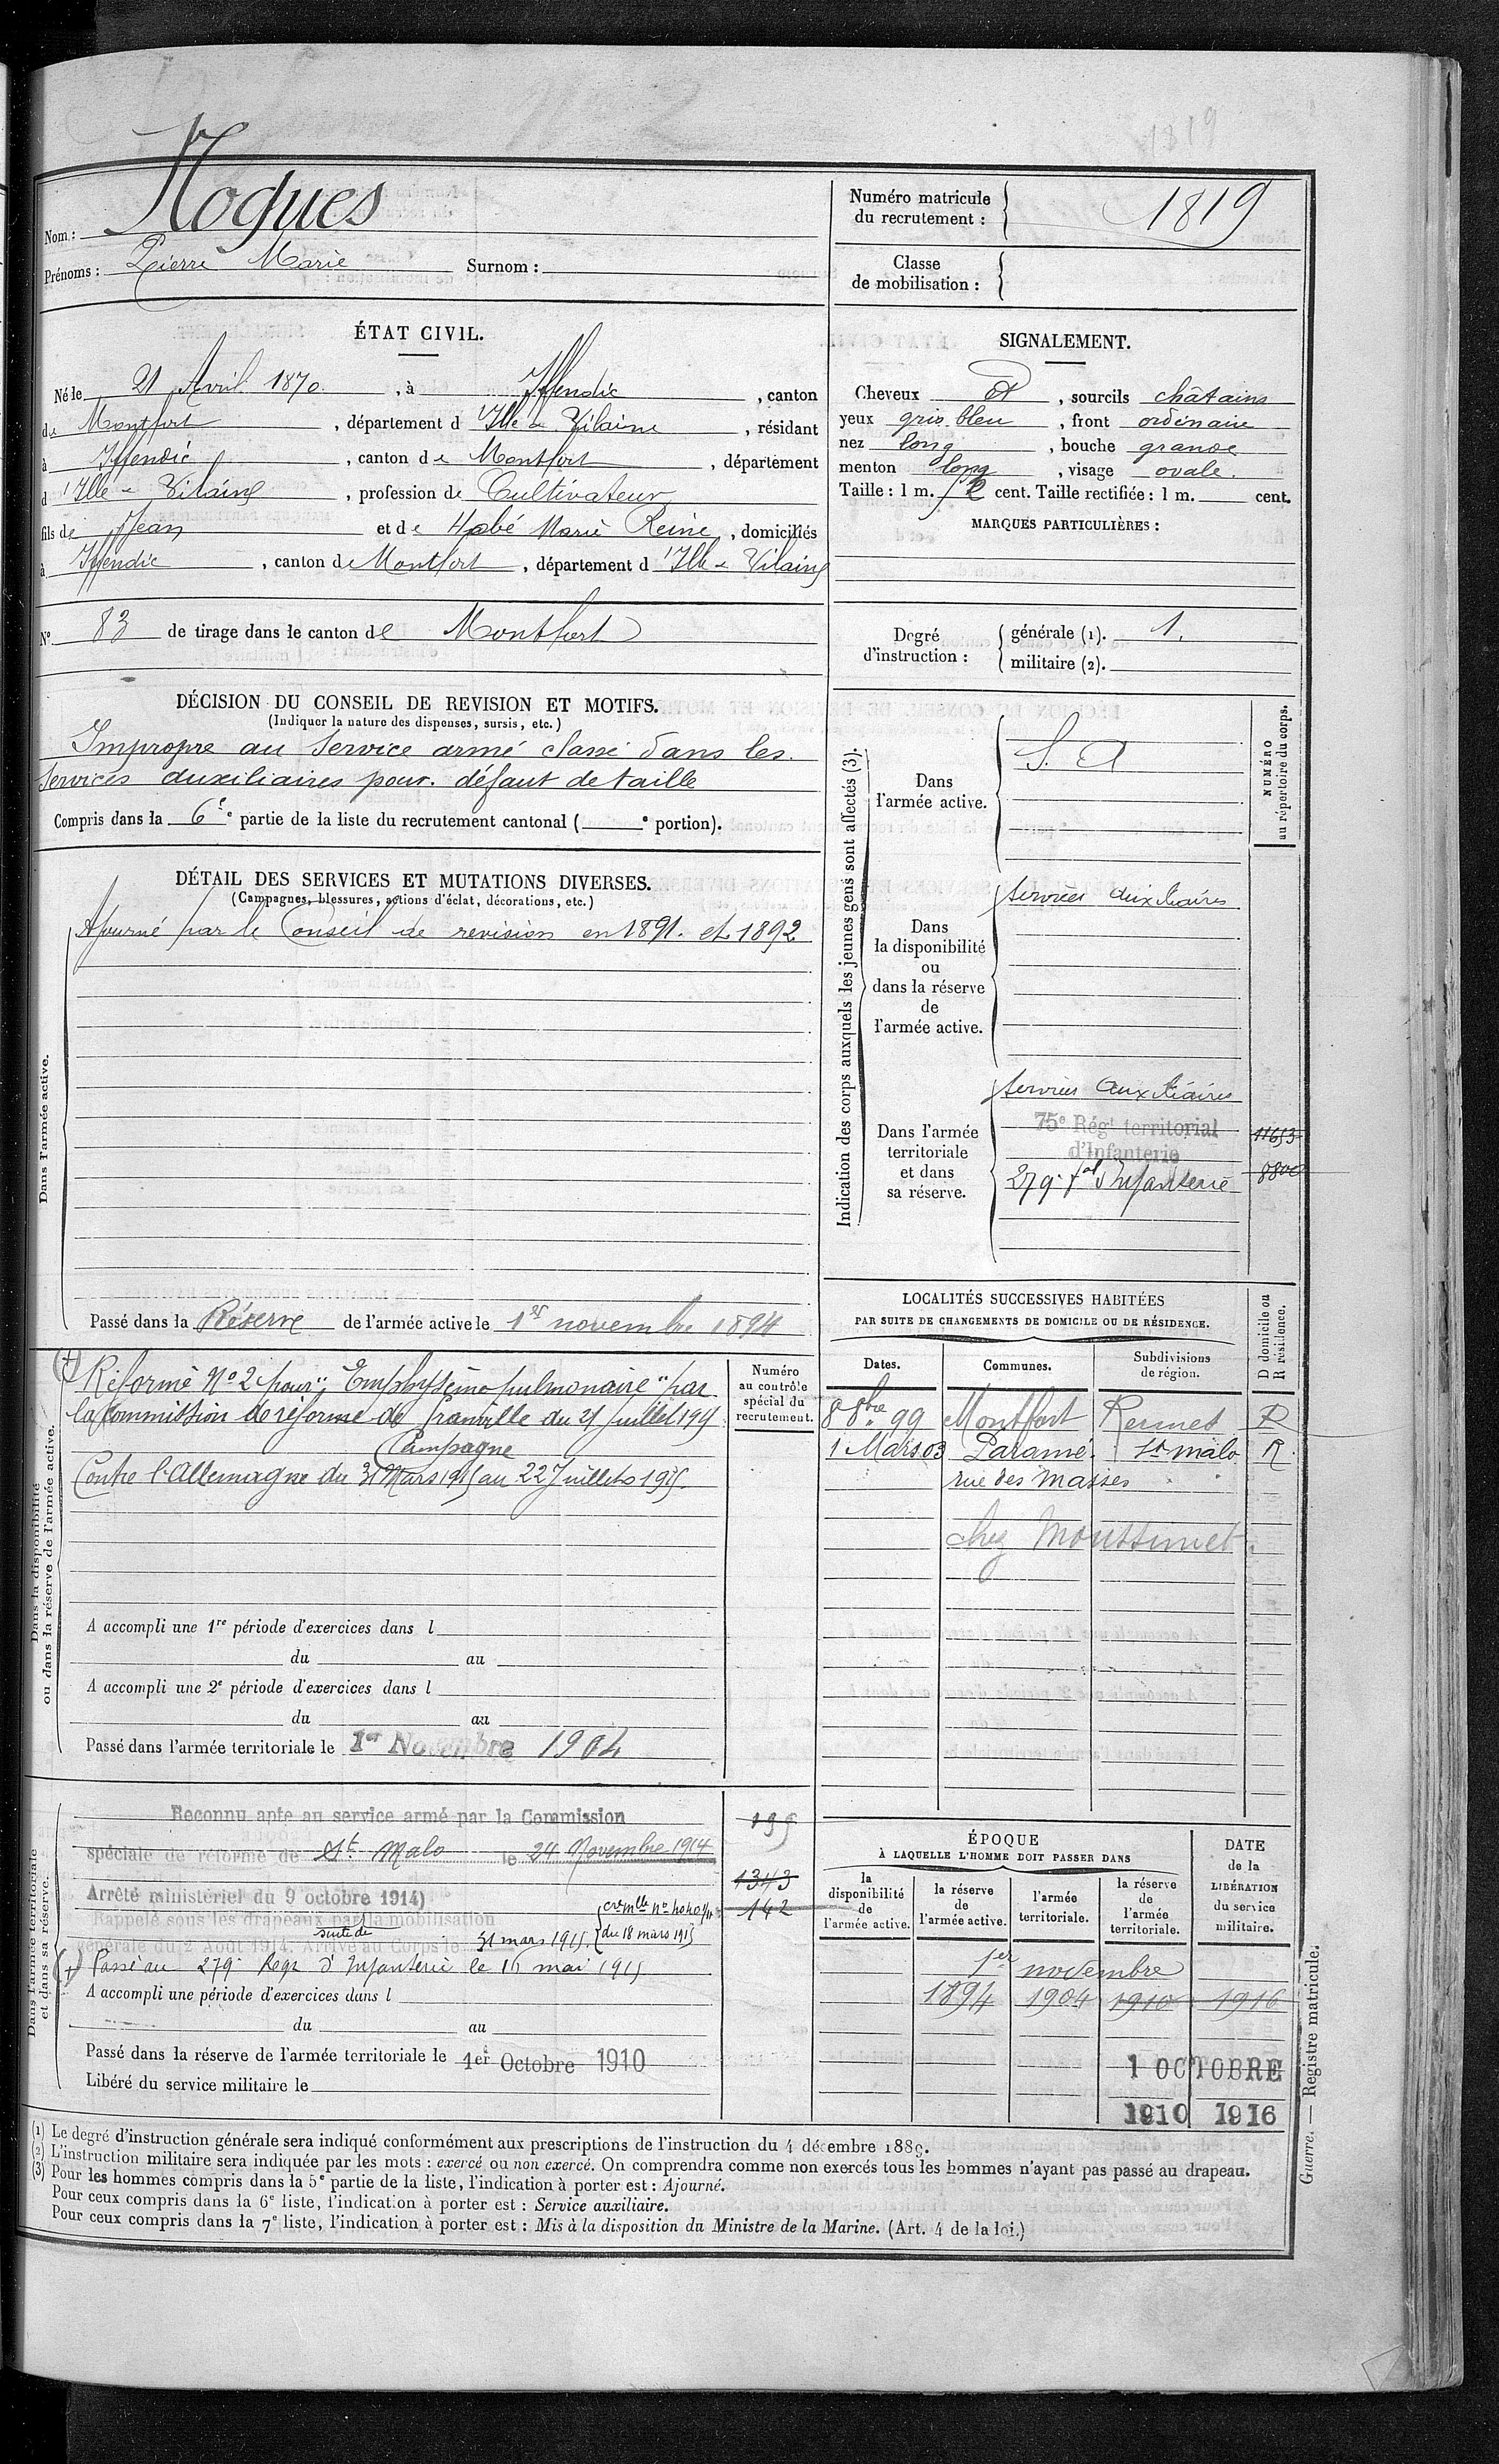 Réformé N° 2
1819
Nom : Nogues
Prénoms : Pierre Marie Surnom :
Numéro matricule du recrutement : 1819
Classe de mobilisation :
ÉTAT CIVIL.
Né le 21 Avril 1870, à Iffendic, canton
de Montfort, département d'Ille-&-Vilaine, résidant
à Iffendic, canton de Montfort, département
d'Ille-&-Vilaine, profession de Cultivateur
fils de Jean et de Habé Marie Reine, domiciliés
à Iffendic, canton de Montfort, département d'Ille-&-Vilaine
N° 83 de tirage dans le canton de Montfort
SIGNALEMENT.
Cheveux et, sourcils châtains
yeux gris bleu, front ordinaire
nez long, bouche grande
menton long, visage ovale.
Taille : 1 m. cent. Taille rectifiée : 1 m. cent.
MARQUES PARTICULIÈRES :
Degré d'instruction : générale (1). 1.
militaire (2).
DÉCISION DU CONSEIL DE REVISION ET MOTIFS.
(Indiquer la nature des dispenses, sursis, etc.)
Impropre au Service armé classé dans les
services auxiliaires pour défaut de taille
Compris dans la 6e e partie de la liste du recrutement cantonal ( e portion).
DÉTAIL DES SERVICES ET MUTATIONS DIVERSES.
(Campagnes, blessures, actions d'éclat, décorations, etc.)
Dans l'armée active.
Ajourné par le Conseil de revision en 1891. et 1892
Passé dans la Réserve de l'armée active le 1er novembre 1894
Indication des corps auxquels les jeunes gens sont affectés (3).
NUMÉRO au répertoire du corps.
Dans l'armée active.
S. A
Dans la disponibilité ou dans la réserve de l'armée active.
Services auxiliaires
Dans l'armée territoriale et dans sa réserve.
Services Auxiliaires
75e Régt territorial
d'Infanterie
11653
279e tal d'Infanterie
8800
Dans la disponibilité ou dans la réserve de l'armée active.
Numéro au contrôle spécial du recrutement.
(+) Réformé N° 2 pour "Emphysème pulmonaire" par
la Commission de réforme de Granville du 21 Juillet 1915
Campagne
Contre l'Allemagne du 31 Mars 1915 au 22 Juillet 1915.
A accompli une 1re période d'exercices dans l
du au
A accompli une 2e période d'exercices dans l
du au
Passé dans l'armée territoriale le 1er Novembre 1904
LOCALITÉS SUCCESSIVES HABITÉES
PAR SUITE DE CHANGEMENTS DE DOMICILE OU DE RÉSIDENCE.
Dates. Communes. Subdivisions de région. D domicile ou R résidence.
8 8bre 99 Montfort Rennes R
1 Mars 03 Paramé. St malo R.
rue des Masses
chez
Dans l'armée territoriale et dans sa réserve.
Reconnu apte au service armé par la Commission
spéciale de réforme de St Malo le 24 Novembre 1914
Arrêté ministériel du 9 octobre 1914)
Rappelé sous les drapeaux par la mobilisation
suite de
générale du 2 Août 1914. Arrivé au Corps le 31 mars 1915.
(cre mlle n° 4040 1/11
du 18 mars 1915
1343
142
(+) Passé au 279e Regt d'Infanterie le 16 mai 1915
A accompli une période d'exercices dans l
du au
Passé dans la réserve de l'armée territoriale le 1er Octobre 1910
Libéré du service militaire le
ÉPOQUE
À LAQUELLE L'HOMME DOIT PASSER DANS
DATE de la LIBÉRATION du service militaire.
la disponibilité de l'armée active. la réserve de l'armée active. l'armée territoriale. la réserve de l'armée territoriale.
1er novembre
1894 1904 1910 1916
1 OCTOBRE
1910 1916
Guerre. — Registre matricule.
(1) Le degré d'instruction générale sera indiqué conformément aux prescriptions de l'instruction du 4 décembre 1889.
(2) L'instruction militaire sera indiquée par les mots : exercé ou non exercé. On comprendra comme non exercés tous les hommes n'ayant pas passé au drapeau.
(3) Pour les hommes compris dans la 5e partie de la liste, l'indication à porter est : Ajourné.
Pour ceux compris dans la 6e liste, l'indication à porter est : Service auxiliaire.
Pour ceux compris dans la 7e liste, l'indication à porter est : Mis à la disposition du Ministre de la Marine. (Art. 4 de la loi.)